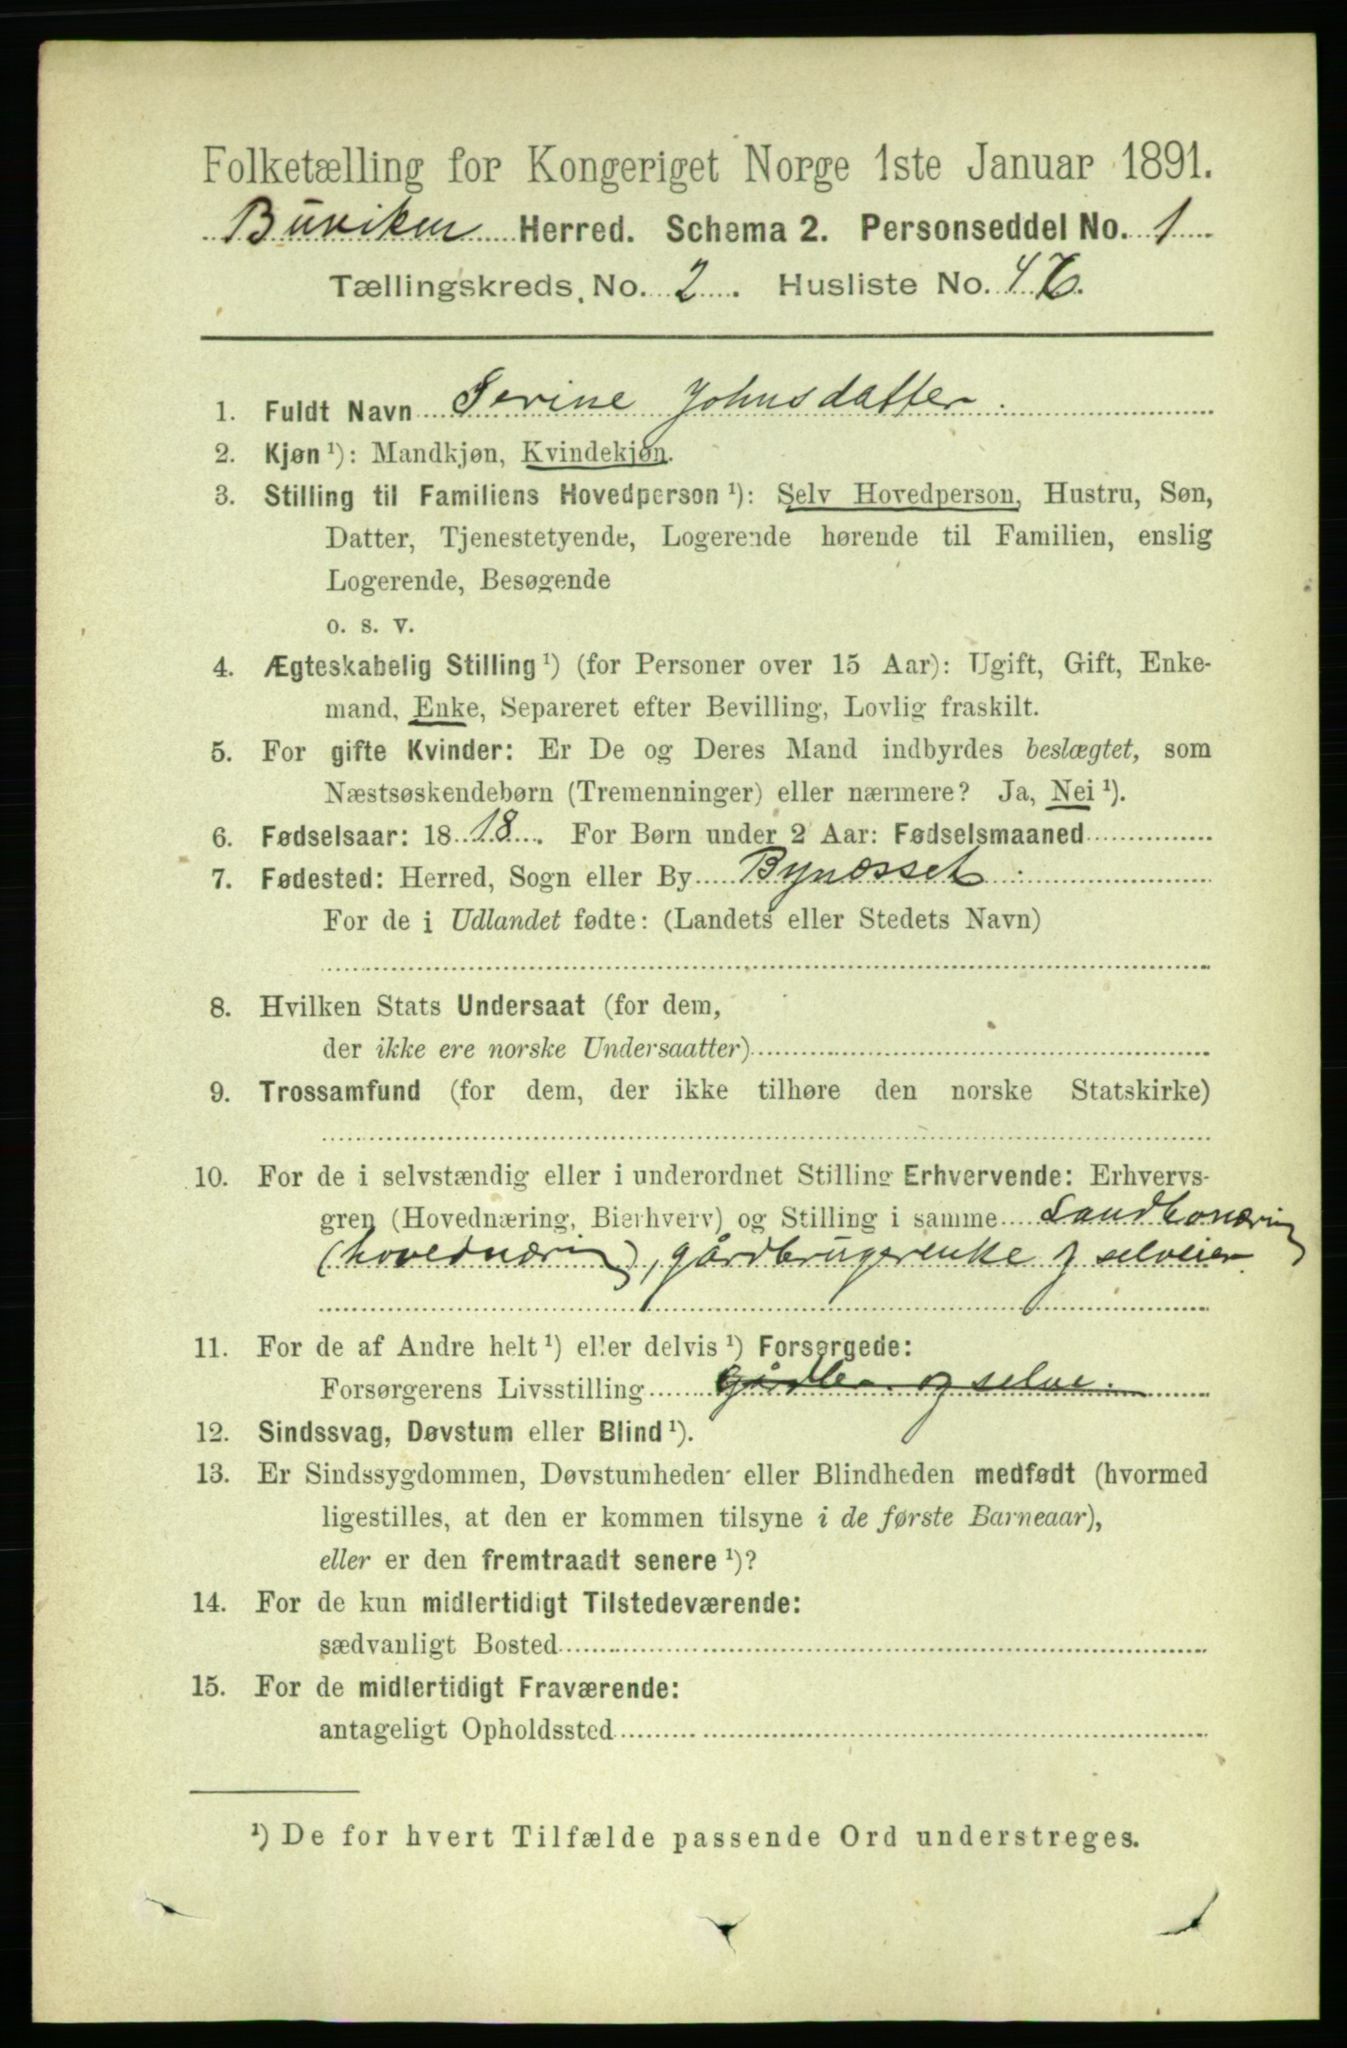 Folketælling for Kongeriget Norge 1ste Januar 1891.
Buviken Herred. Schema 2. Personseddel No. 1
Tællingskreds, No. 2. Husliste No. 46.
1. Fuldt Navn Serine Johnsdatter.
2. Kjøn ¹): Mandkjøn, Kvindekjøn.
3. Stilling til Familiens Hovedperson ¹): Selv Hovedperson, Hustru, Søn,
Datter, Tjenestetyende, Logerende hørende til Familien, enslig
Logerende, Besøgende
o. s. v.
4. Ægteskabelig Stilling ¹) (for Personer over 15 Aar): Ugift, Gift, Enke-
mand, Enke, Separeret efter Bevilling, Lovlig fraskilt.
5. For gifte Kvinder: Er De og Deres Mand indbyrdes beslægtet, som
Næstsøskendebørn (Tremenninger) eller nærmere? Ja, Nei ¹).
6. Fødselsaar: 18 18. For Børn under 2 Aar: Fødselsmaaned
7. Fødested: Herred, Sogn eller By Bynæsset
For de i Udlandet fødte: (Landets eller Stedets Navn)
8. Hvilken Stats Undersaat (for dem,
der ikke ere norske Undersaatter)
9. Trossamfund (for dem, der ikke tilhøre den norske Statskirke)
10. For de i selvstændig eller i underordnet Stilling Erhvervende: Erhvervs-
gren (Hovednæring, Bierhverv) og Stilling i samme Landbonæring
(hovednæring), gårdbrugerenke og selveier
11. For de af Andre helt ¹) eller delvis ¹) Forsørgede:
Forsørgerens Livsstilling og selvei.
12. Sindssvag, Døvstum eller Blind ¹).
13. Er Sindssygdommen, Døvstumheden eller Blindheden medfødt (hvormed
ligestilles, at den er kommen tilsyne i de første Barneaar),
eller er den fremtraadt senere ¹)?
14. For de kun midlertidigt Tilstedeværende:
sædvanligt Bosted
15. For de midlertidigt Fraværende:
antageligt Opholdssted
¹) De for hvert Tilfælde passende Ord understreges.